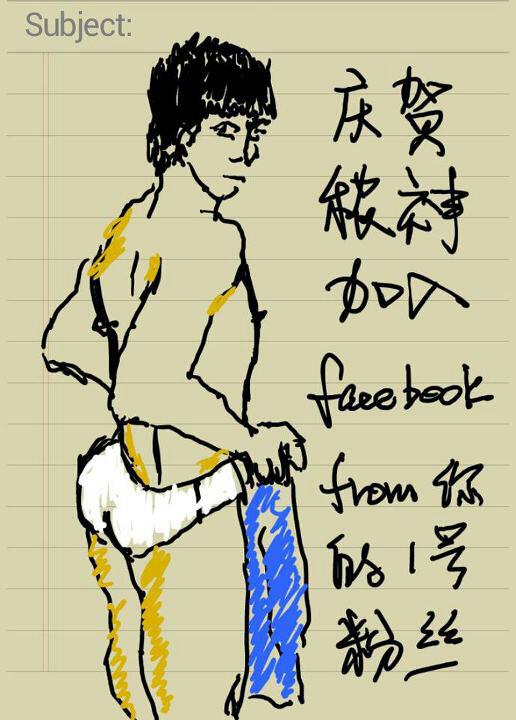 Subject:
庆贺
加入
facebook
from 你
的1号
粉丝